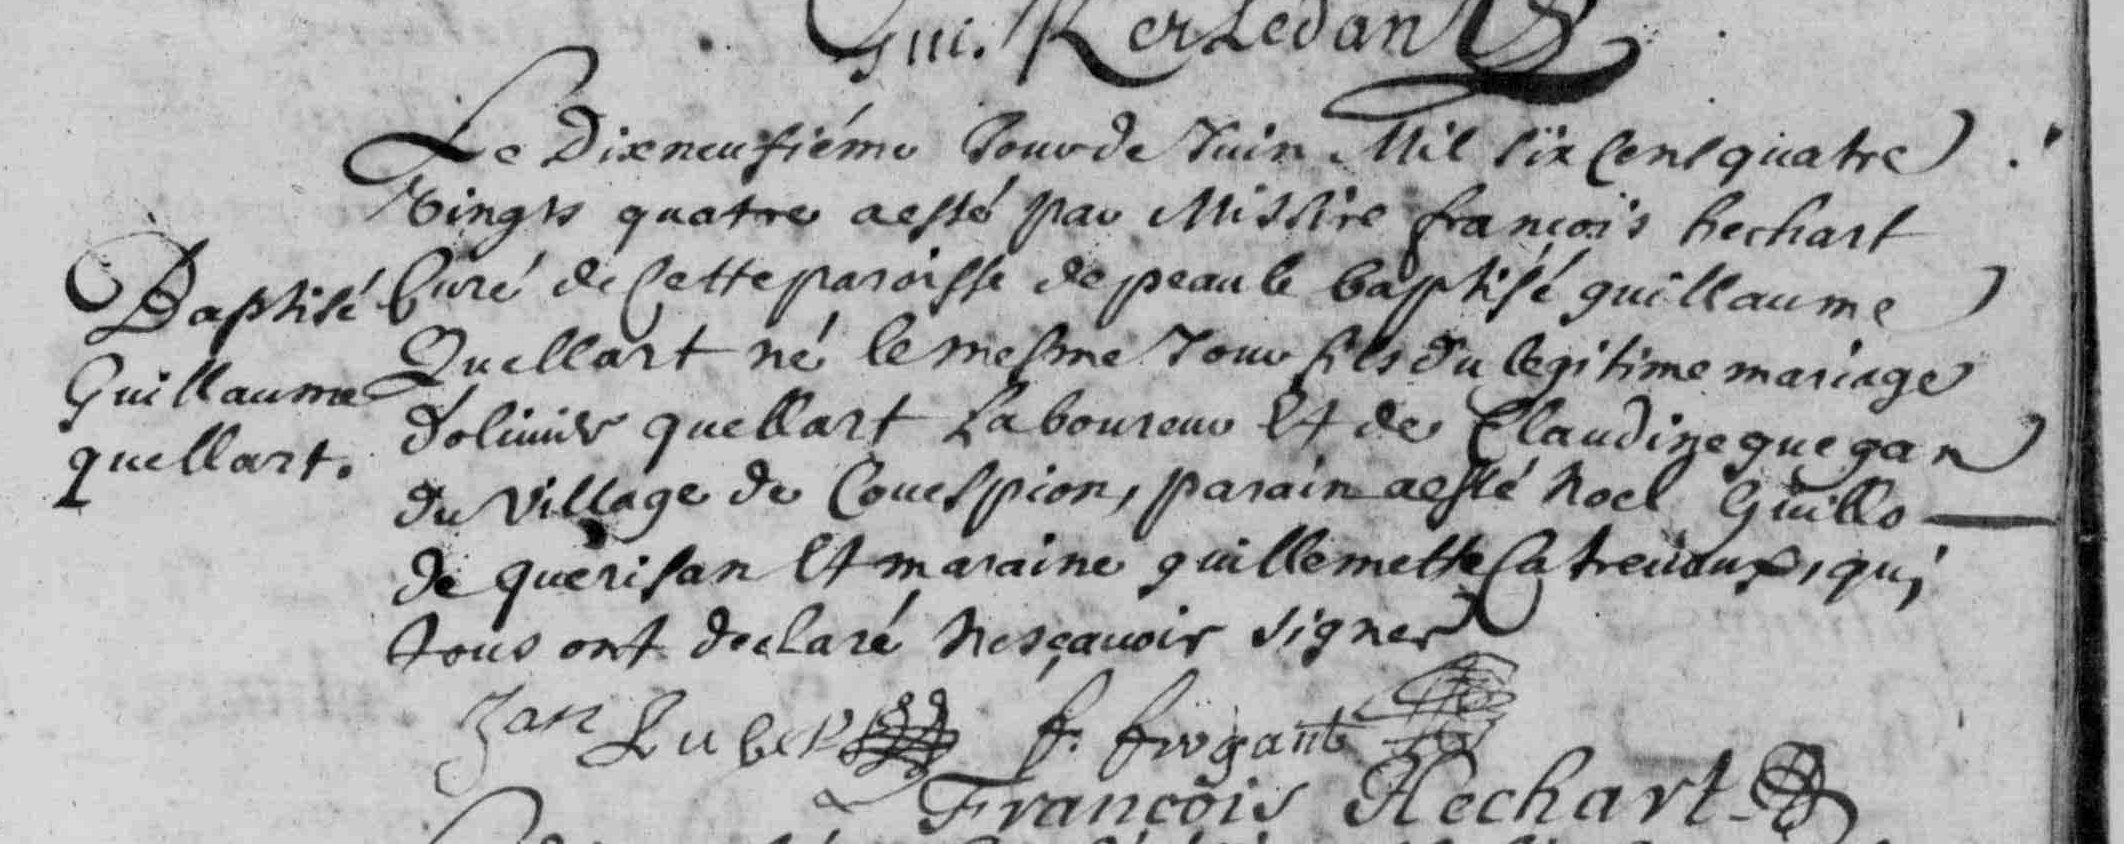 Gui. Kerledan
Le Dixneufiéme Jour de Juin Mil six Cent quatre
Vingts quatre a esté par Missire françois hechart
Curé de Cette paroisse de peaule baptisé guillaume
Quellart né le mesme Jour fils du legitime mariage
d'oliuier quellart Laboureur Et de Claudine quegan
du village de Couespion, parain a esté Noel Guillo
de querisan Et maraine guillemette Catreuaux, qui
tous ont declaré Ne sçauoir signer
Baptisé
Guillaume
quellart.
Jan Lubert f. frogant
François Hechart